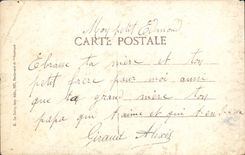 Mon petit Edmond
CARTE POSTALE
Ebrasse ta mère et ton
petit frère pour moi aussi
que ta grand mère ton
papa qui t'aime et qui
Giraud Alexis